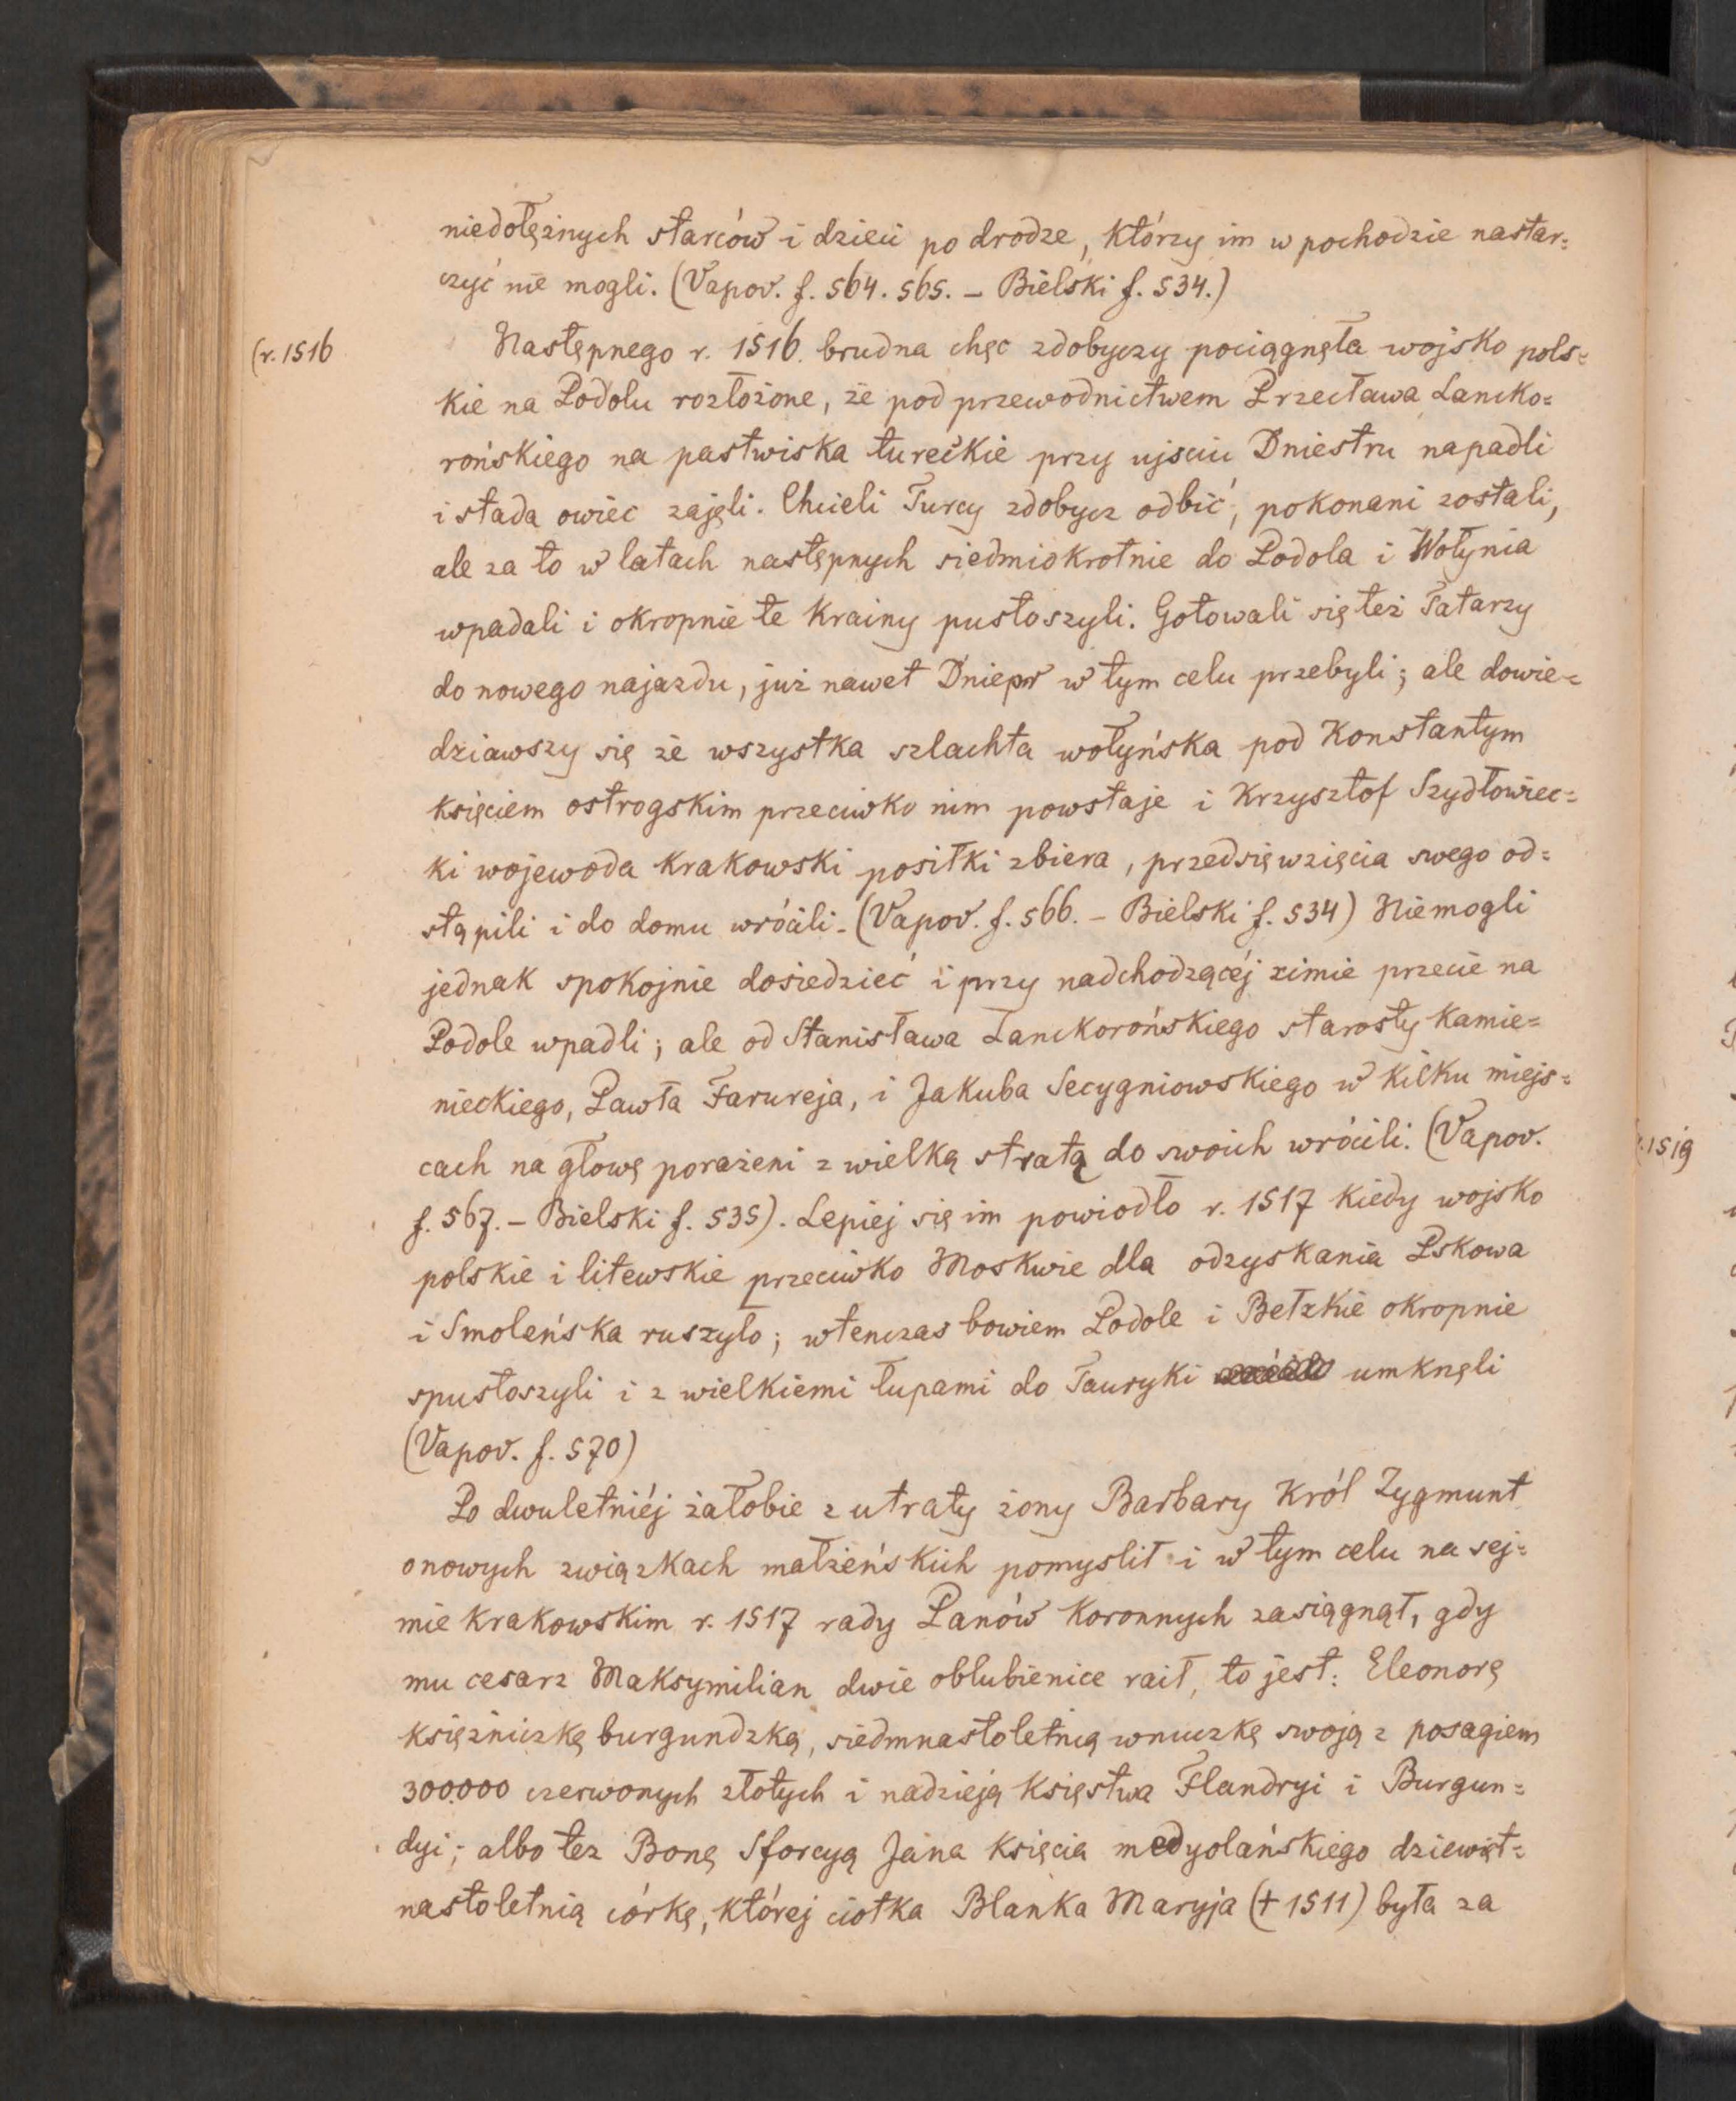 niedołężnych starców i dzieci po drodze, którzy im w pochodzie nastar=
czyć nie mogli. (Vapov. f. 564. 565. – Bielski f. 534.)
(r. 1516
Następnego r. 1516. brudna chęc zdobyczy pociągnęła wojsko pols=
kie na Podolu rozłożone, że pod przewodnictwem Przecława Lancko=
rońskiego na pastwiska tureckie przy ujsciu Dniestru napadli
i stada owiec zajęli. Chcieli Turcy zdobycz odbić, pokonani zostali,
ale za to w latach następnych siedmiokrotnie do Podola i Wołynia
wpadali i okropnie te krainy pustoszyli. Gotowali się też Tatarzy
do nowego najazdu, już nawet Dniepr w tym celu przebyli; ale dowie=
dziawszy się że wszystka szlachta wołyńska pod Konstantym
księciem ostrogskim przeciwko nim powstaje i Krzysztof Szydłowiec=
ki wojewoda krakowski posiłki zbiera, przedsięwzięcia swego od=
stąpili i do domu wrócili. (Vapov. f. 566. – Bielski f. 534) Niemogli
jednak spokojnie dosiedzieć i przy nadchodzącéj zimie przecie na
Podole wpadli; ale od Stanisława Lanckorońskiego starosty kamie=
nieckiego, Pawła Farureja, i Jakuba Secygniowskiego w kilku miejs=
cach na głowę porażeni z wielką stratą do swoich wrócili. (Vapov.
f. 567. – Bielski f. 535). Lepiej się im powiodło r. 1517 kiedy wojsko
polskie i litewskie przeciwko Moskwie dla odzyskania Pskowa
i Smoleńska ruszyło; wtenczas bowiem Podole i Bełzkie okropnie
spustoszyli i z wielkiemi łupami do Tauryki umknęli
(Vapov. f. 570)
Po dwuletniéj żałobie z utraty żony Barbary Król Zygmunt
o nowych związkach małżeńskich pomyslił i w tym celu na sej=
mie krakowskim r. 1517 rady Panów koronnych zasiągnął, gdy
mu cesarz Maksymilian dwie oblubienice raił, to jest: Eleonorę
księżniczkę burgundzką, siedmnastoletnią wnuczkę swoją z posagiem
300.000 czerwonych złotych i nadzieją księstwa Flandryi i Burgun=
dyi; albo tez Bonę Sforcyą Jana księcia medyolańskiego dziewięt=
nastoletnią córkę, której ciotka Blanka Maryja († 1511) była za
r. 1519